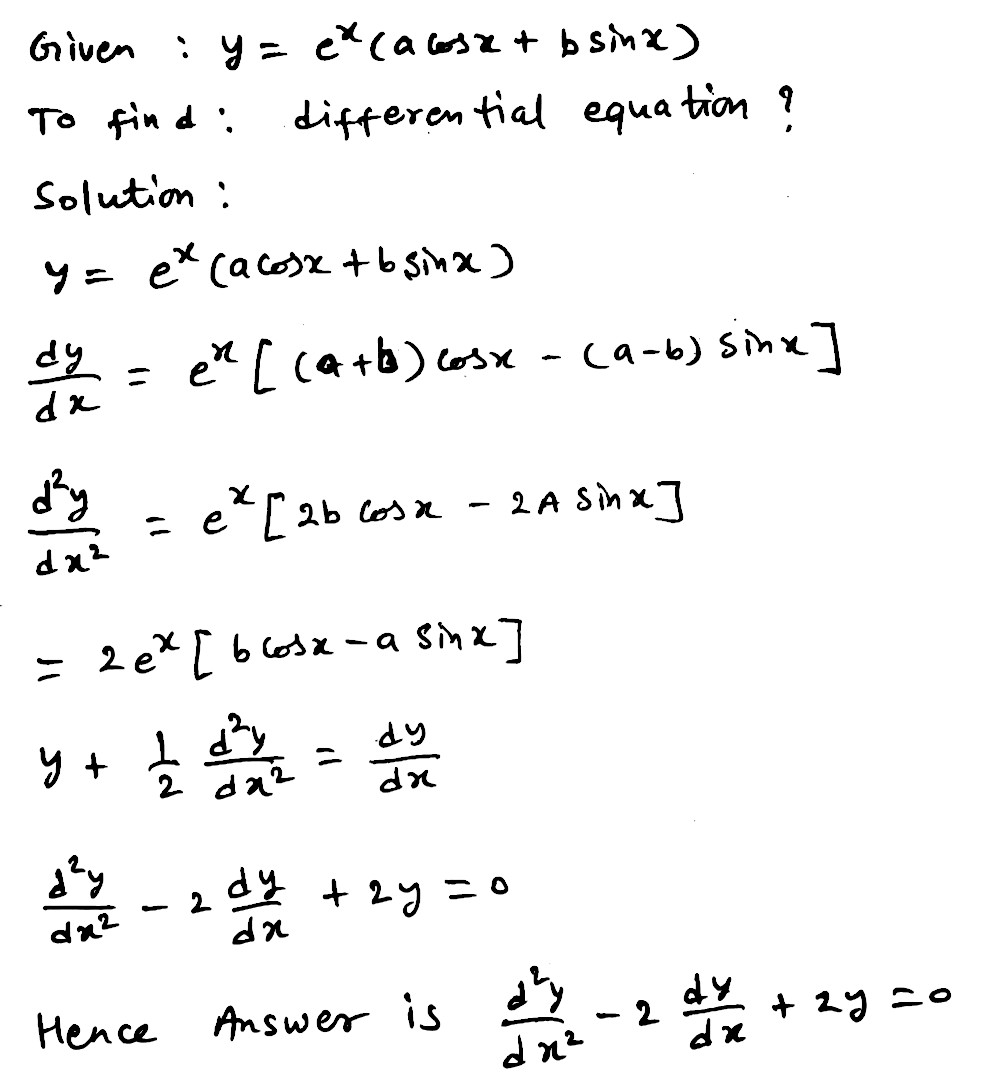 Given : y = e^x (a cosx + b sinx)
To find : differential equation ?
Solution :
y = e^x (a cosx + b sinx)
dy/dx = e^x [ (a+b) cosx - (a-b) sinx ]
d²y/dx² = e^x [ 2b cosx - 2A sinx ]
= 2e^x [ b cosx - a sinx ]
y + 1/2 d²y/dx² = dy/dx
d²y/dx² - 2 dy/dx + 2y = 0
Hence Answer is d²y/dx² - 2 dy/dx + 2y = 0